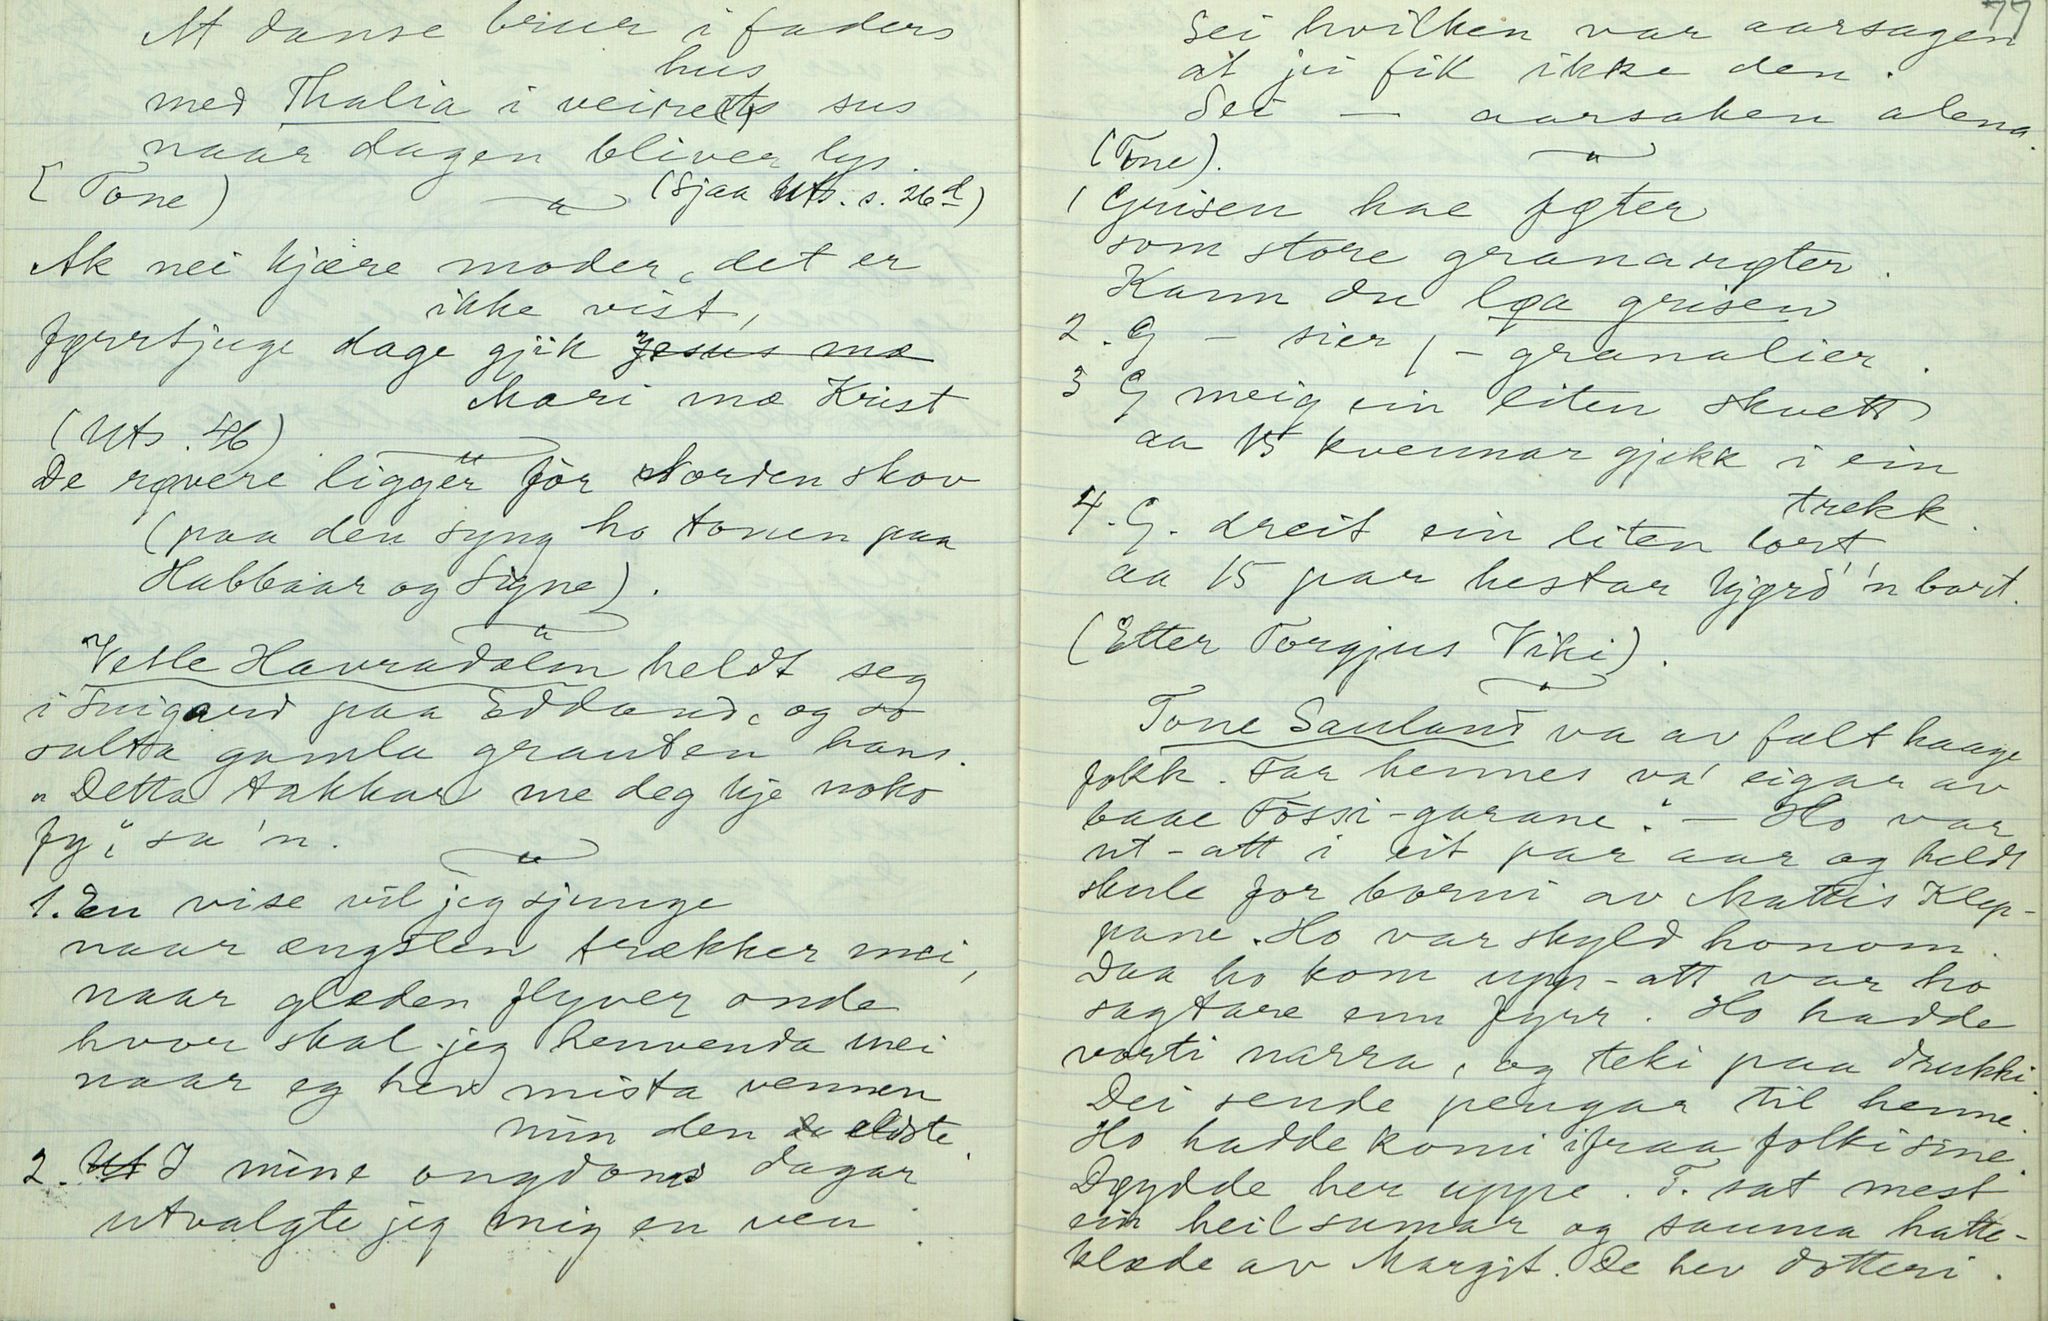 At danse bruer i faders
hus
med Thalia i veirets sus
naar dagen bliver lys.
[Tone) (Sjaa Uts. s. 26d)
Ak nei kjære moder, det er
ikke vist,
fyrrtjuge dage gjik Jesus mæ
Mari mæ Krist
(Uts. 46)
De røvere ligger før Norden skov
(paa den syng ho tonen paa
Habbaar og Signe).
Vesle Havradalen heldt seg
i Suigard paa Eddand, og so
salta gamla grauten hans.
"Detta takkar me deg kje noko
fy", sa'n.
1. En vise vil jeg sjunge
naar ængslen trækker mei,
naar glæden flyver onde
hvor skal jeg henvenda mei
naar eg hev mista vennen
min den de eldste.
2. Ut I mine ongdoms dagar
utvalgte jeg mig en ven.
77
Sei hvilken var aarsagen
at jei fik ikke den.
Sei — aarsaken alena.
(Tone).
1 Grisen hae føter
som store granarøter.
Kann du løa grisen
2. G – sier, – granalier.
3 G meig ein liten skvett
aa 15 kvennar gjekk i ein
trekk.
4. G. dreit ein liten lort
aa 15 par hestar kjørd'n bort.
(Etter Torgjus Viki).
Tone Sauland va av fælt haage
folkk. Far hennes va' eigar av
baae Fossi-garane". – Ho var
ut-att i eit par aar og heldt
skule for borni av Mattis Klep-
pane. Ho var skyld honom.
Daa ho kom upp-att var ho
sagtare enn fyrr. Ho hadde
vorti narra, og teki paa drukki.
Dei sende pengar til henne.
Ho hadde komi ifraa folki sine.
Døydde her uppe. T. sat mest
ein heil sumar og sauma hatte-
klæde av Margit. De hev dotteri.